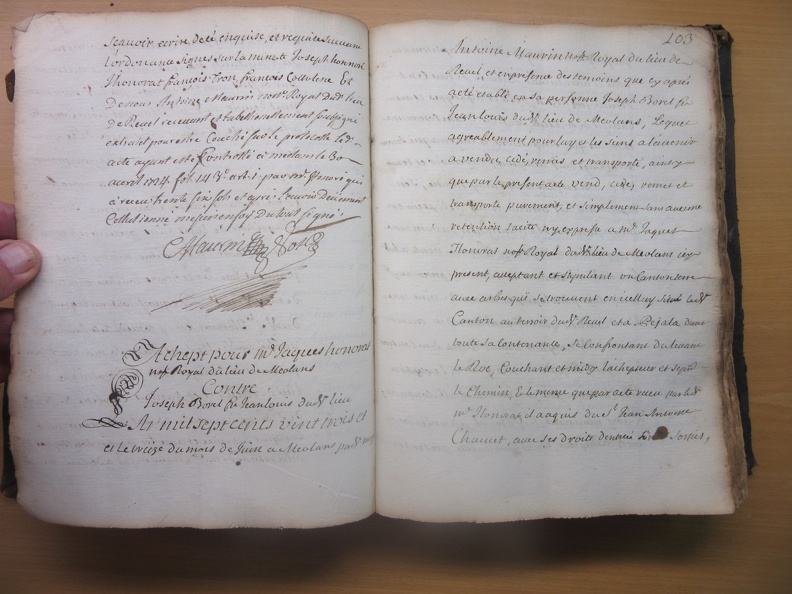 Scavoir ecrire de ce enquise, et requise suivant
l'ordonance signés sur la minute Joseph honnoré
honorat françois Tron, françois
Denous Antoine Maurin nore. Royal du dt. lieu
de Reuil recevant et tabellionnement soussigné
extrait pour estre Couché sur le protocolle le d.
acte ayant esté Controllé à meolans le 30
avril 1724. fol 14 Vo. art. 1. par mr. qui
a receu trente six sols et apres l'avoir deuement
Collationné me foy du tout signé
Maurin nore
Achept pour me. Jaques honorat
nore. Royal du lieu de Meolans
Contre
Joseph Borel feu Jean louis du dt. lieu
L'An mil sept cents vint trois et
et le treize du mois de Juin a Meolans par dt. nous
103
Antoine Maurin nore. Royal du lieu de
Reuil, et en presence des temoins que cy apres
acte etabli en sa personne Joseph Borel feu
Jean louis du dt. lieu de Meolans, Lequel
agreablement pour luy et les siens a l'avenir
a vendu, cedé, remis et transporté, ainsy
que par le present acte vend, cede, remet et
transporte purement, et simplement sans aucune
retention tacite ny expresse a me. Jaques
Honorat nore. Royal du dt. lieu de Meolans icy
present, acceptant et stipulant un Canton terre
avec arbres qui se trouvent en icelluy situé le dt.
Canton au terroir du dt. Reuil et a Pejala dans
toute sa contenance, se confrontant du levant
le Rec, Couchant et midy l'achepteur et septent.
le Chemin, Et le meme que par acte receu par le dt.
me. Honorat il a aquis du sr. Jean Antoine
Chauvet, avec ses droits d'entrées et Sorties,